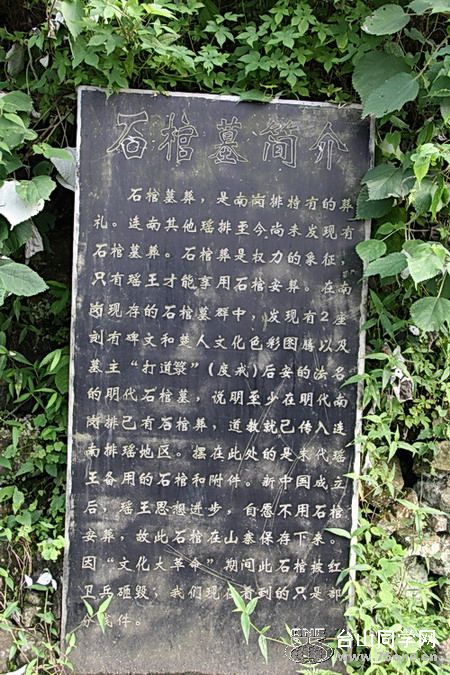 石棺墓简介
石棺墓葬，是南岗排特有的葬
礼。连南其他瑶排至今尚未发现有
石棺墓葬。石棺葬是权力的象征，
只有瑶王才能享用石棺安葬。在南
岗现存的石棺墓群中，发现有2座
刻有碑文和楚人文化色彩图腾以及
墓主“打道箓”(度戒)后安的法名
的明代石棺墓，说明至少在明代南
岗排已有石棺葬，道教就已传入连
南排瑶地区。摆在此处的是末代瑶
王备用的石棺和附件。新中国成立
后，瑶王思想进步，自愿不用石棺
安葬，故此石棺在山寨保存下来。
因“文化大革命”期间此石棺被红
卫兵砸毁，我们现在看到的只是部
分残件。
台山同学网